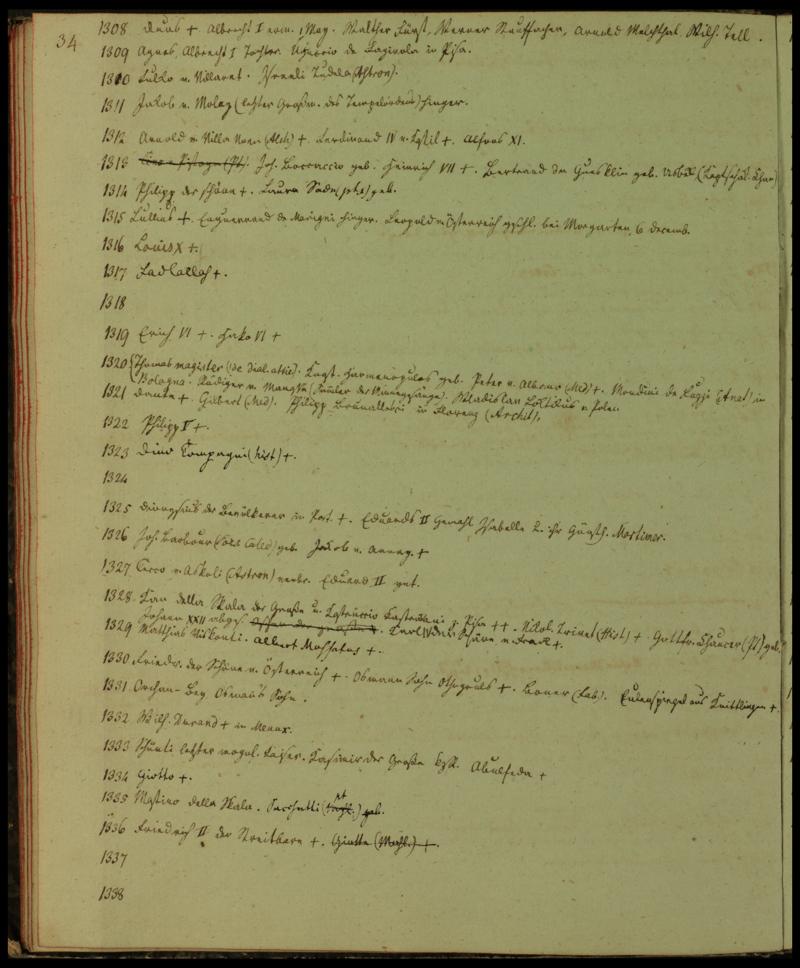 34
1308 Duns +. Albrecht I erm. 1 May. Walther Fürst, Werner Stauffacher, Arnold Melchthal. Wilh. Tell.
1309 Agnes, Albrecht I Tochter. Uguccio de Fagivola in Pisa.
1310 Fulko v. Villaret. Israeli Tudela (Astron).
1311 Jakob v. Molay (letzter Großm. des Tempelordens) hinger.
1312 Arnold v. Villa Nova (Alch) +. Ferdinand IV v. Kastil +. Alfons XI.
1313 Cino v Pistoja (Pt). Joh. Boccaccio geb. Heinrich VII +. Bertrand du Guesklin geb. Usbek (Kaptschak. Chan)
1314 Philipp der schöne +. Laura Sade geb.
1315 Lullius +. Enguerrand de Marigni hinger. Leopold v Österreich geschl. bei Morgarten, 6 Decemb.
1316 Louis X +.
1317 Fadlallah +.
1318
1319 Erich VI +. Hako VI +
1320 Thomas magister (de dial. attic). Const. Harmenopulos geb. Peter v. Albano (Med) +. Mondini de Luzzi (Anat) in
Bologna. Rüdiger v. Manesse (Samler der Minnegesänge). Wladislav Loktikus v. Polen
1321 Dante +. Gilbert (Med). Philipp Brunalleschi in Florenz (Archit).
1322 Philipp V +.
1323 Dino Compagni (hist) +.
1324
1325 Dionysius der Bevölkerer in Port. +. Eduards II Gemahl Isabelle u. ihr Günstl. Mortimer.
1326 Joh. Barbour geb. Jakob v. Arrag. +
1327 Cecco v. Askoli (Astron) verbr. Eduard II ent.
1328 Kan della Skala der Große u. Kastruccio Kastrakani v. Pisa ++. Nikol. Trivet (Hist) +. Gottfr. Chaucer (Pt) geb.
Johann XXII abges. Carl IV der Schöne v. Frank +.
1329 Matthias Viskonti. Albert Mussatus +.
1330 Friedr. der Schöne v. Österreich +. Osmann Sohn Othoguls +. Boner (Fab). Eulenspiegel aus Knittlingen +.
1331 Orchan-Beg Osmans Sohn.
1332 Wilh. Durand + in Meaux.
1333 Schunti letzter mogol. Kaiser. Kasimir der Große kgk. Abulfeda +
1334 Giotto +.
1335 Mastino della Skala. Sacchetti (pt) geb.
1336 Friedrich II der Streitbare +. Giotto (Mahl.) +.
1337
1338